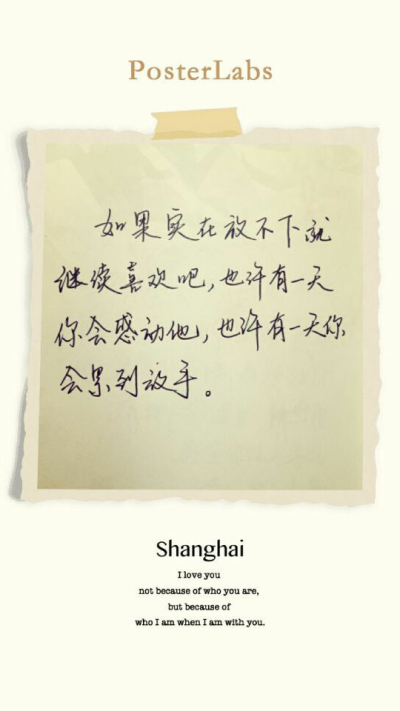 PosterLabs
如果实在放不下就
继续喜欢吧,也许有一天
你会感动他,也许有一天你
会累到放手。
Shanghai
I love you
not because of who you are,
but because of
who I am when I am with you.